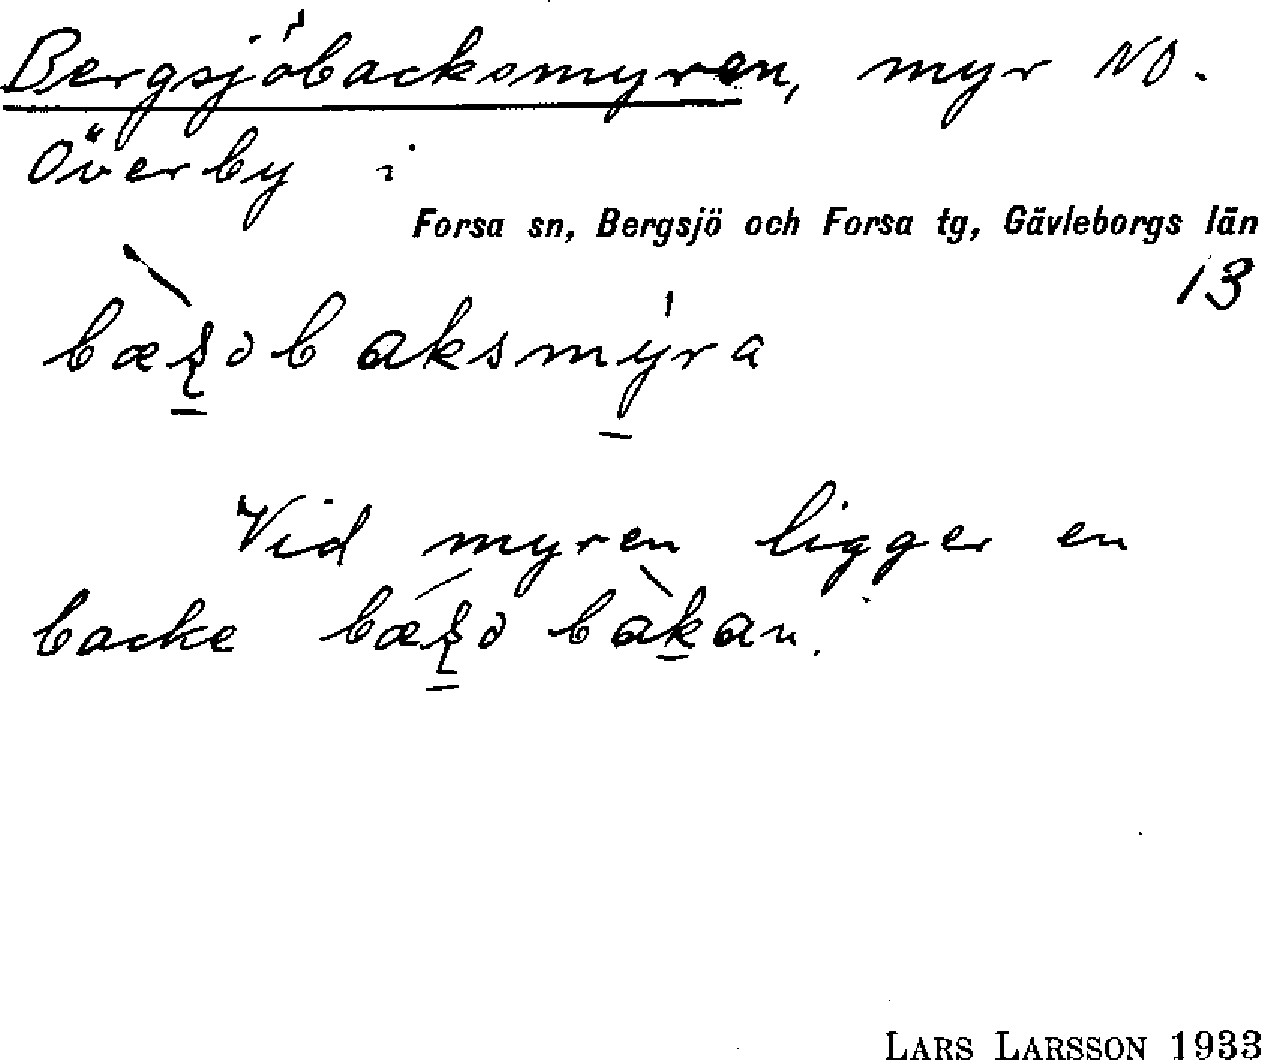 Bergsjöbacksmyren, myr NO.
Överby i
Forsa sn, Bergsjö och Forsa tg, Gävleborgs län
13
Vid myren ligger en
backe
LARS LARSSON 1933